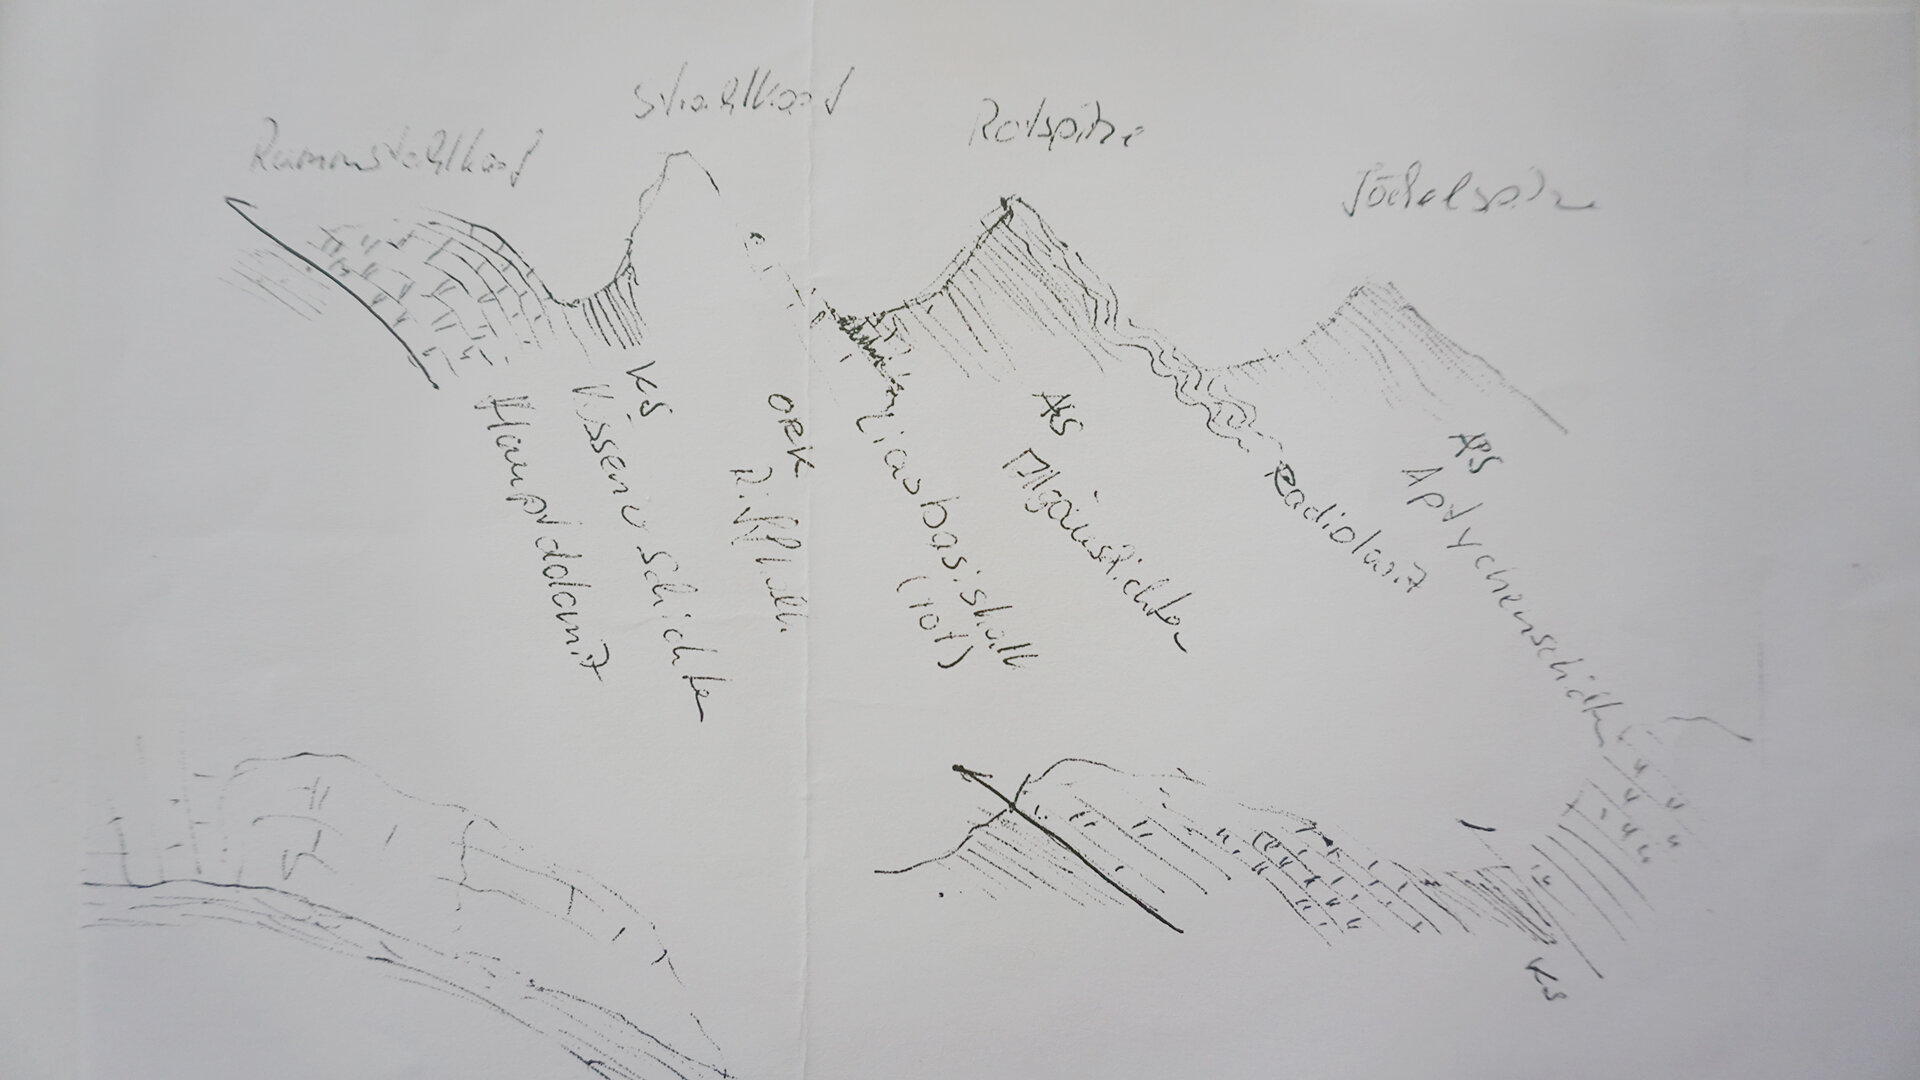 Ramstahlkopf
Stahlkopf
Rotspitze
Jöchelspitze
KS
Kössener Schichten
Hauptdolomit
ORK
Riffkalk
Liasbasiskalk
(rot)
AS
Allgäuschichten
Radiolarit
APS
Aptychenschichten
KS